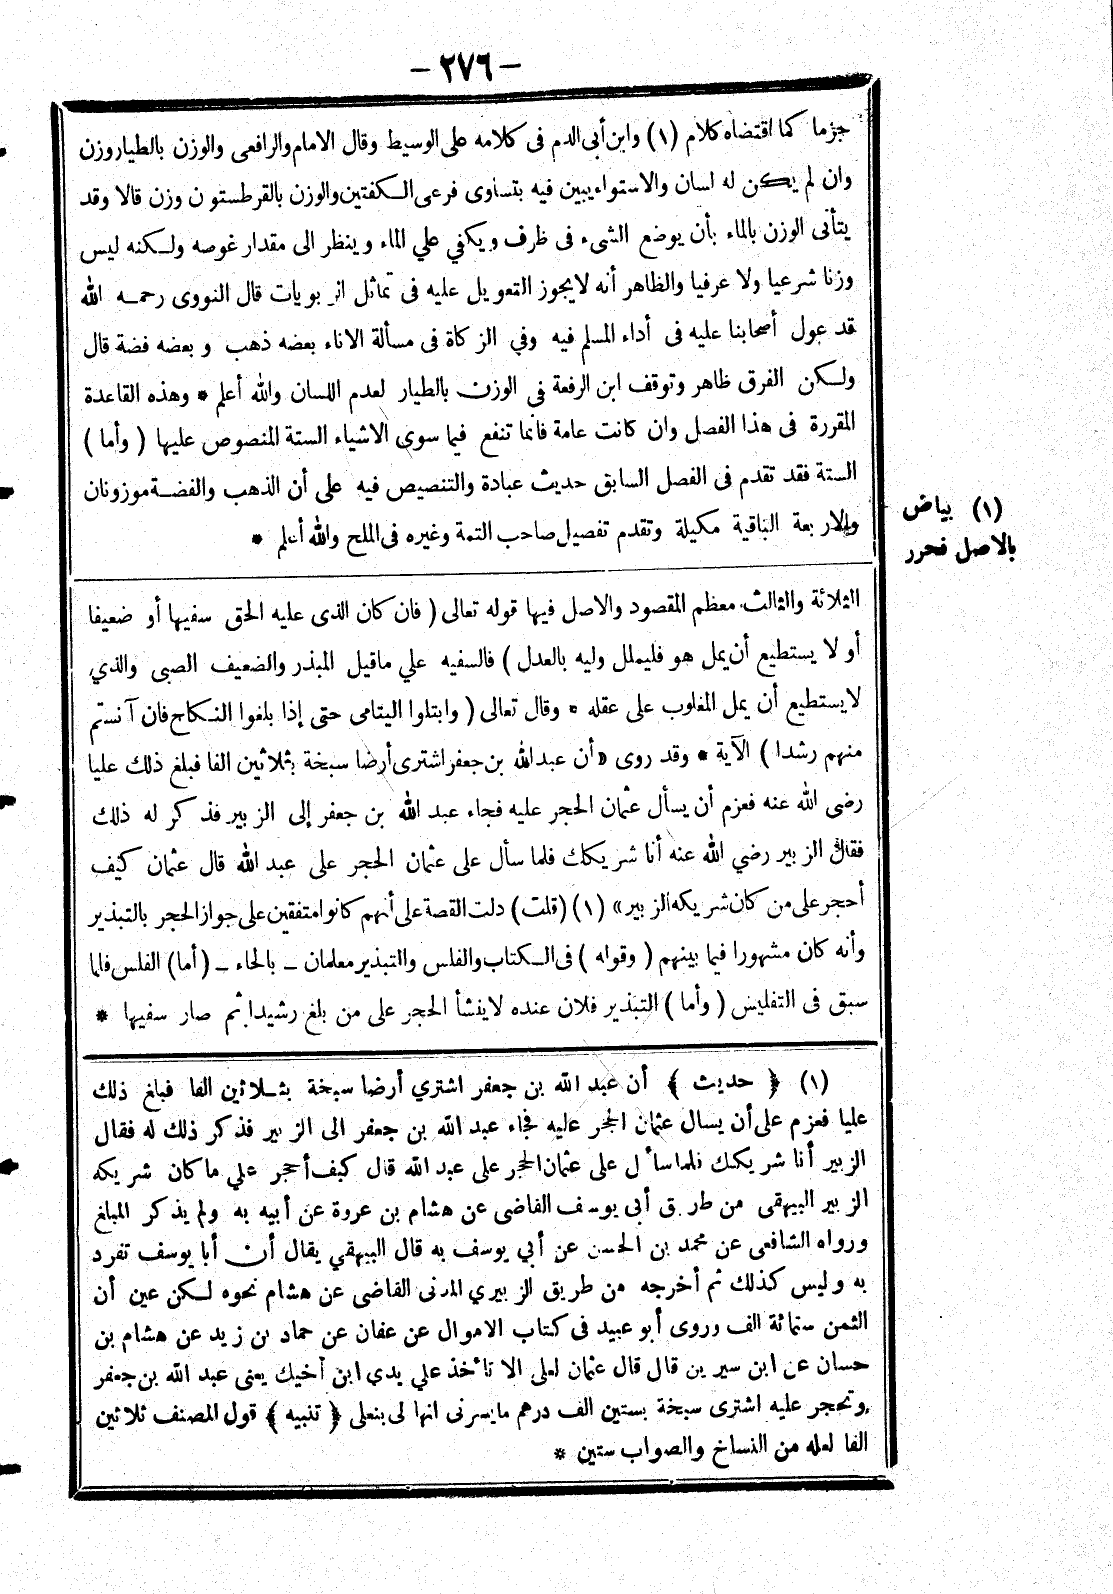 - ٢٧٦ -
جزما كما اقتضاه كلام (١) وابن أبى الدم فى كلامه على الوسيط وقال الامام والرافعى والوزن بالطيار وزن
وان لم يكن له لسان والاستواء يبين فيه بتساوى فرعى الكفتين والوزن بالقرطستون وزن قالا وقد
يتأتى الوزن بالماء بأن يوضع الشىء فى ظرف ويكفي علي الماء وينظر الى مقدار غوصه ولكنه ليس
وزنا شرعيا ولا عرفيا والظاهر أنه لا يجوز التعويل عليه فى تماثل الربويات قال النووى رحمه الله
قد عول أصحابنا عليه فى أداء المسلم فيه وفي الزكاة فى مسألة الاناء بعضه ذهب وبعضه فضة قال
ولكن الفرق ظاهر وتوقف ابن الرفعة في الوزن بالطيار لعدم اللسان والله أعلم * وهذه القاعدة
المقررة فى هذا الفصل وان كانت عامة فانما تنفع فيما سوى الاشياء الستة المنصوص عليها ( وأما )
الستة فقد تقدم فى الفصل السابق حديث عبادة والتنصيص فيه على أن الذهب والفضة موزونان
والاربعة الباقية مكيلة وتقدم تفصيل صاحب التتمة وغيره فى الملح والله أعلم *
(١) بياض
بالاصل فحرر
الثلاثة والثالث معظم المقصود والاصل فيها قوله تعالى ( فان كان الذى عليه الحق سفيها أو ضعيفا
أو لا يستطيع أن يمل هو فليملل وليه بالعدل ) فالسفيه علي ماقيل المبذر والضعيف الصبى والذي
لا يستطيع أن يمل المغلوب على عقله * وقال تعالى ( وابتلوا اليتامى حتى إذا بلغوا النكاح فان آنستم
منهم رشدا ) الآية * وقد روى « أن عبد الله بن جعفر اشترى أرضا سبخة بثلاثين الفا فبلغ ذلك عليا
رضى الله عنه فعزم أن يسأل عثمان الحجر عليه فجاء عبد الله بن جعفر إلى الزبير فذكر له ذلك
فقال الزبير رضي الله عنه أنا شريكك فلما سأل على عثمان الحجر على عبد الله قال عثمان كيف
أحجر على من كان شريكه الزبير » (١) (قلت) دلت القصة على أنهم كانوا متفقين على جواز الحجر بالتبذير
وأنه كان مشهورا فيما بينهم ( وقوله ) فى الكتاب والفلس والتبذير معلمان ــ بالحاء ــ (أما) الفلس فلما
سبق فى التفليس ( وأما ) التبذير فلان عنده لا ينشأ الحجر على من بلغ رشيدا ثم صار سفيها *
(١) ﴿ حديث ﴾ أن عبد الله بن جعفر اشتري أرضا سبخة بثلاثين الفا فبلغ ذلك
عليا فعزم على أن يسال عثمان الحجر عليه فجاء عبد الله بن جعفر الى الزبير فذكر ذلك له فقال
الزبير أنا شريكك فلما سأل على عثمان الحجر على عبد الله قال كيف أحجر علي ما كان شريكه
الزبير البيهقى من طريق أبى يوسف القاضى عن هشام بن عروة عن أبيه به ولم يذكر المبلغ
ورواه الشافعى عن محمد بن الحسن عن أبي يوسف به قال البيهقي يقال أن أبا يوسف تفرد
به وليس كذلك ثم أخرجه من طريق الزبيري المدنى القاضى عن هشام نحوه لكن عين أن
الثمن ستمائة الف وروى أبو عبيد فى كتاب الاموال عن عفان عن حماد بن زيد عن هشام بن
حسان عن ابن سيرين قال قال عثمان لعلى الا تأخذ علي يدي ابن أخيك يعنى عبد الله بن جعفر
وتحجر عليه اشترى سبخة بستين الف درهم ما يسرنى انها لى بنعلى ﴿ تنبيه ﴾ قول المصنف ثلاثين
الفا لعله من النساخ والصواب ستين *